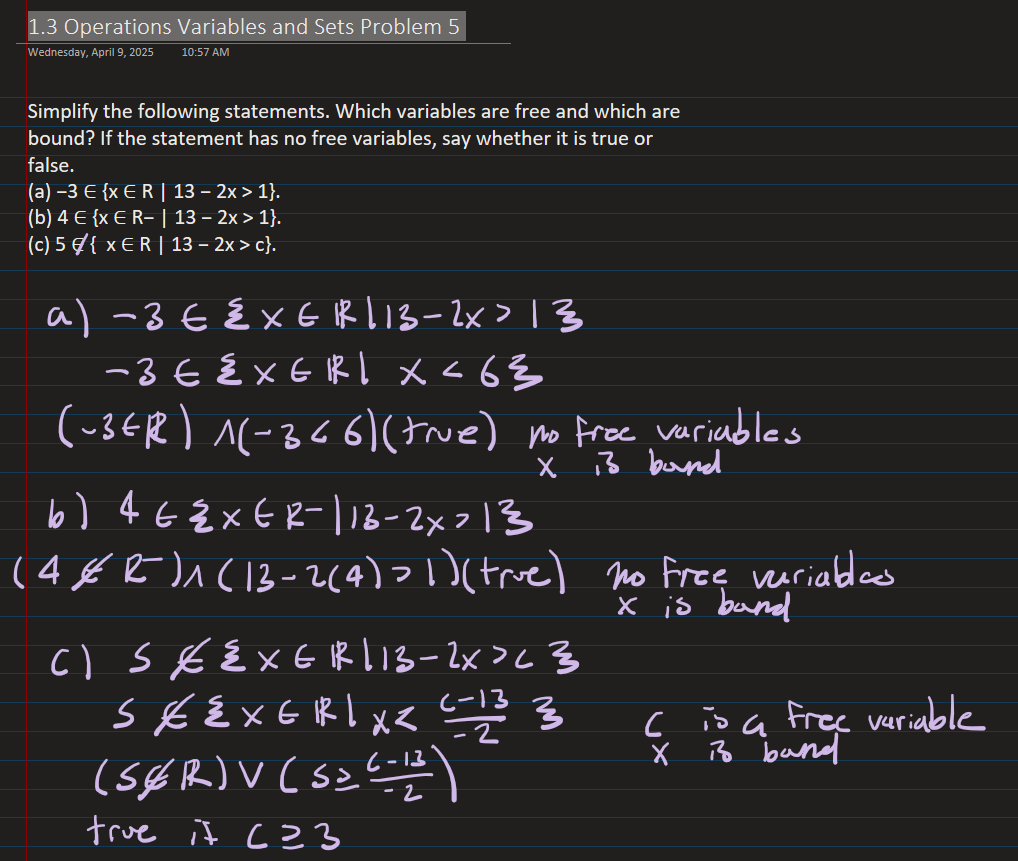 1.3 Operations Variables and Sets Problem 5
Wednesday, April 9, 2025 10:57 AM
Simplify the following statements. Which variables are free and which are
bound? If the statement has no free variables, say whether it is true or
false.
(a) −3 ∈ {x ∈ R | 13 − 2x > 1}.
(b) 4 ∈ {x ∈ R− | 13 − 2x > 1}.
(c) 5 ∉ { x ∈ R | 13 − 2x > c}.
a) −3 ∈ {x ∈ ℝ | 13 − 2x > 1}
−3 ∈ {x ∈ ℝ | x < 6}
(−3 ∈ ℝ) ∧ (−3 < 6) (true) no free variables
x is bond
b) 4 ∈ {x ∈ R⁻ | 13 − 2x > 1}
(4 ∉ R⁻) ∧ (13 − 2(4) > 1) (true) no free variables
x is bond
c) 5 ∉ {x ∈ ℝ | 13 − 2x > c}
5 ∉ {x ∈ ℝ | x < (c − 13)/−2} c is a free variable
x is bond
(5 ∉ ℝ) ∨ (5 ≥ (c − 13)/−2)
true if c ≥ 3